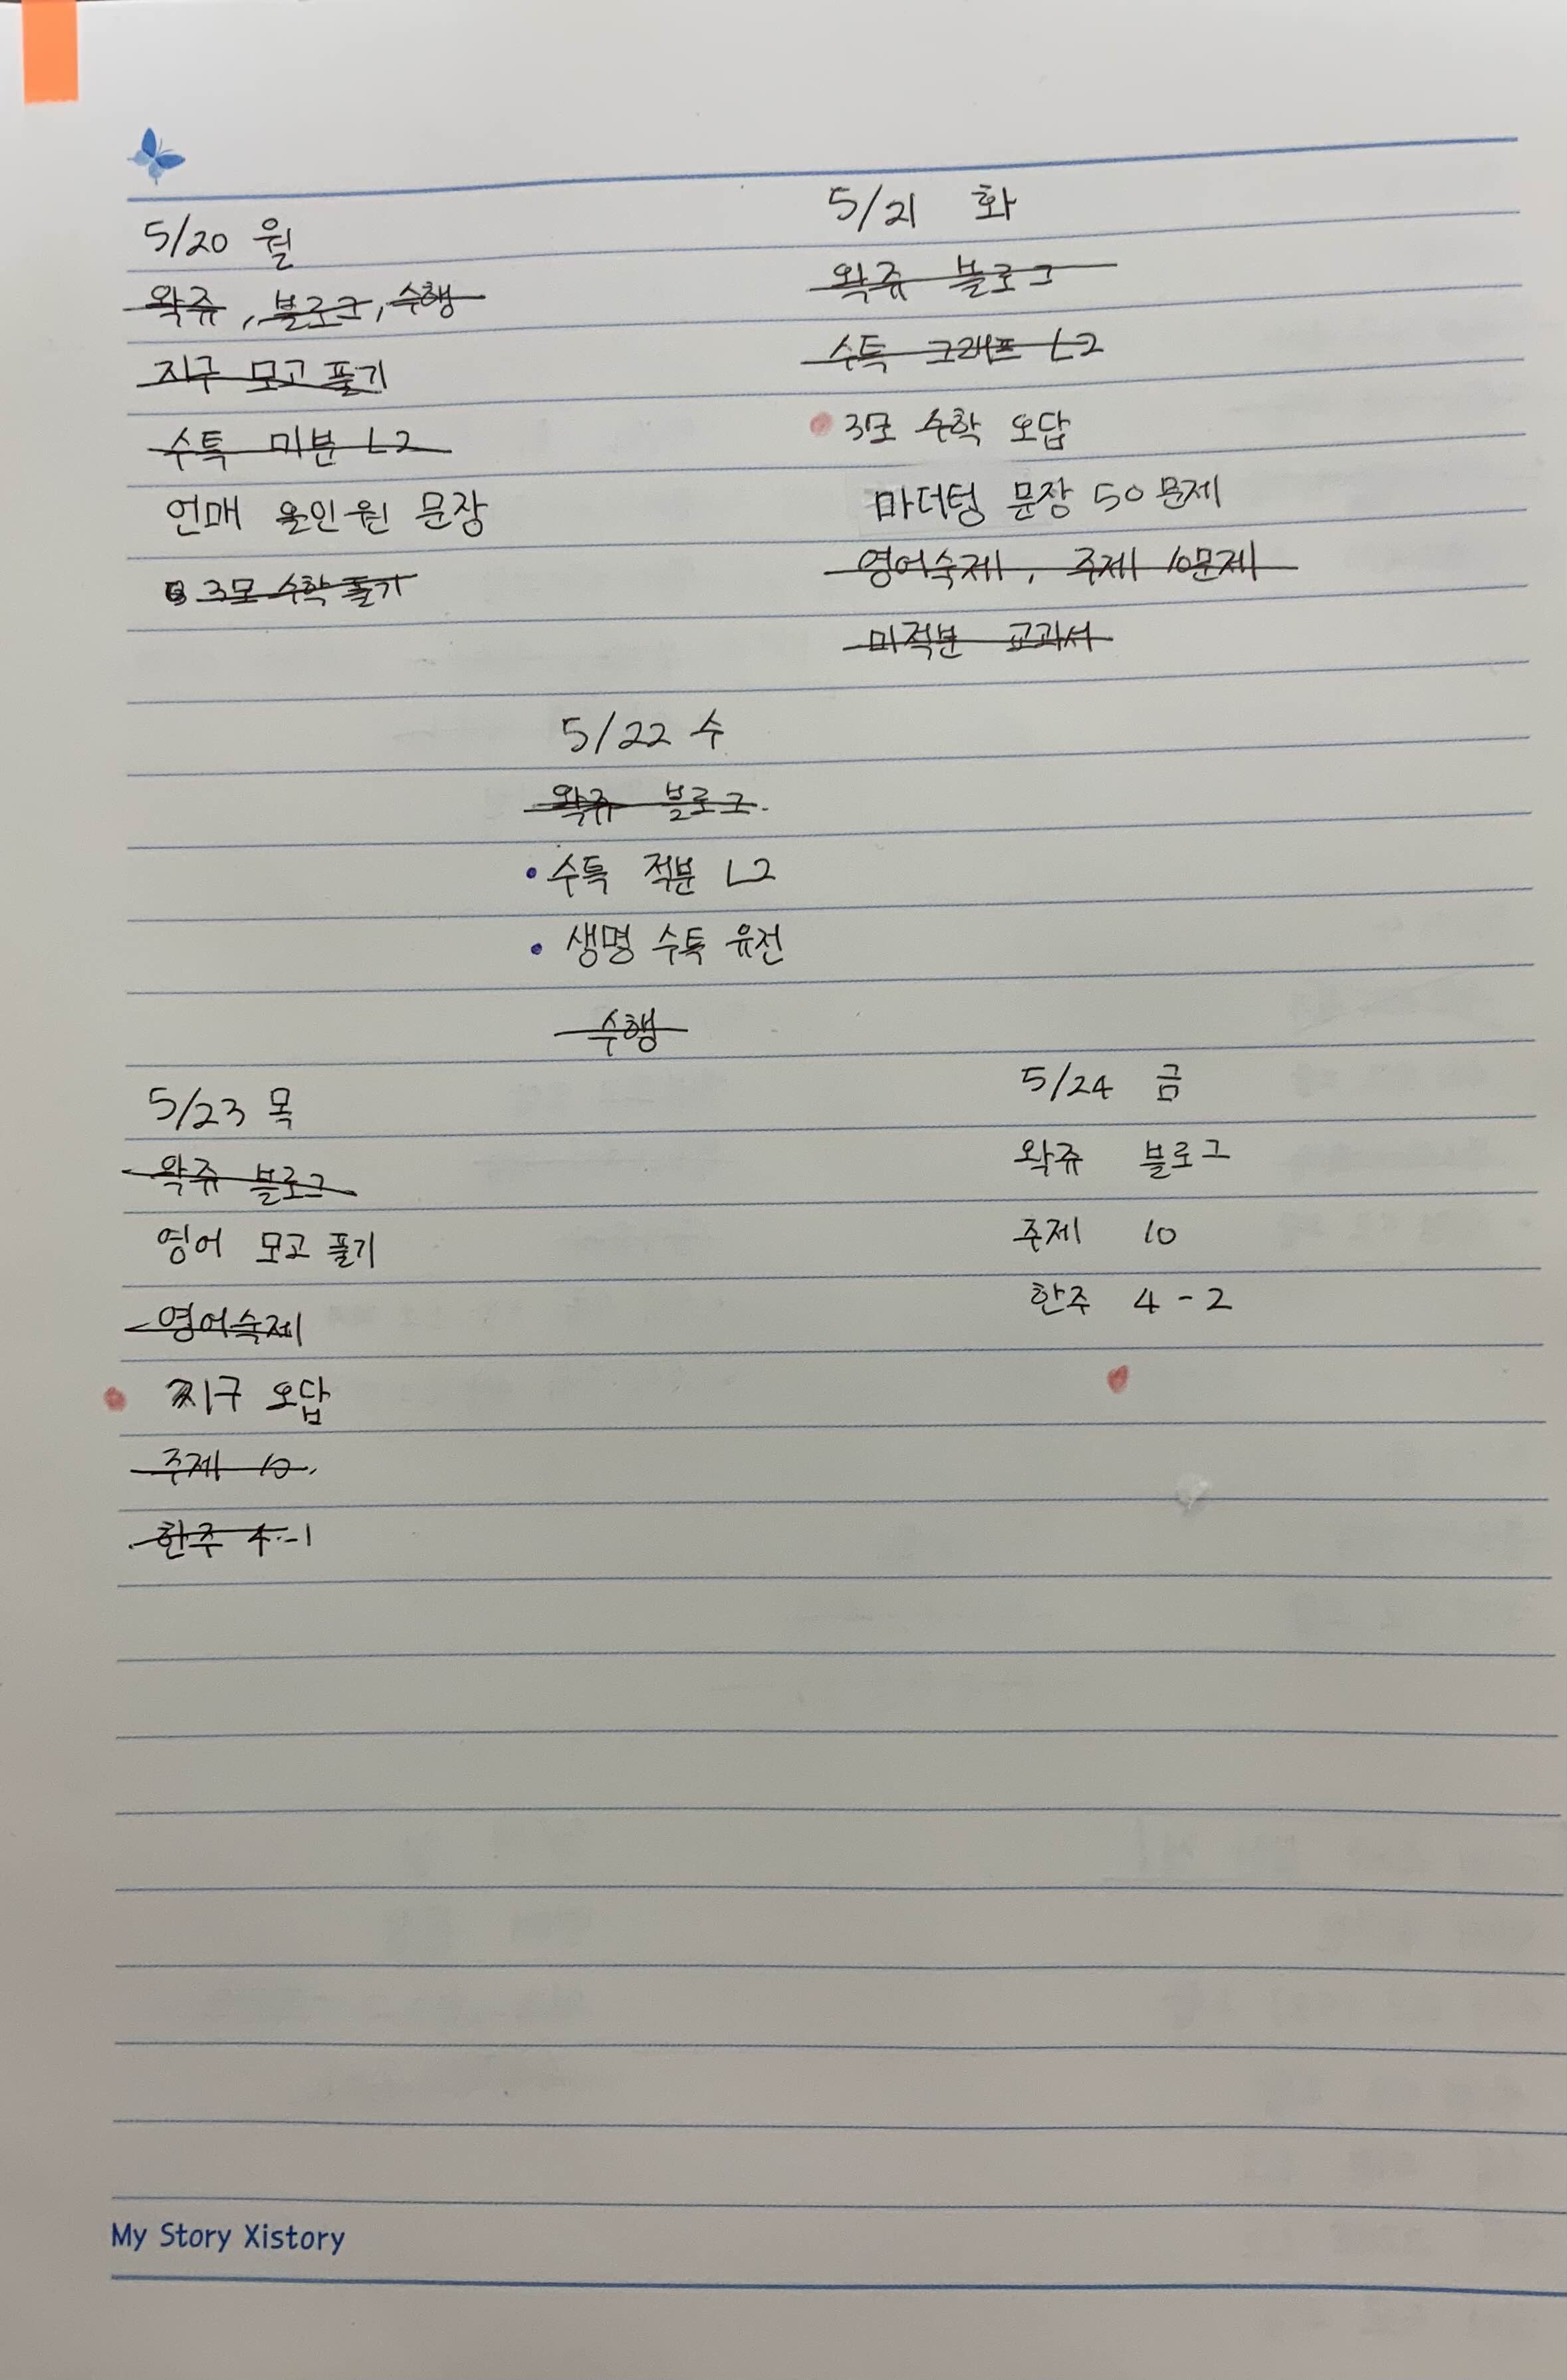 5/20 월
왁쥬, 블로그, 수행
지구 모고 풀기
수특 미분 L2
언매 올인원 문장
3모 수학 풀기
5/21 화
왁쥬 블로그
수특 그래프 L2
3모 수학 오답
마더텅 문장 50문제
영어숙제, 주제 10문제
미적분 교과서
5/22 수
왁쥬 블로그.
• 수특 적분 L2
• 생명 수특 유전
수행
5/23 목
왁쥬 블로그
영어 모고 풀기
영어숙제
지구 오답
주제 10.
한주 4-1
5/24 금
왁쥬 블로그
주제 10
한주 4-2
My Story Xistory